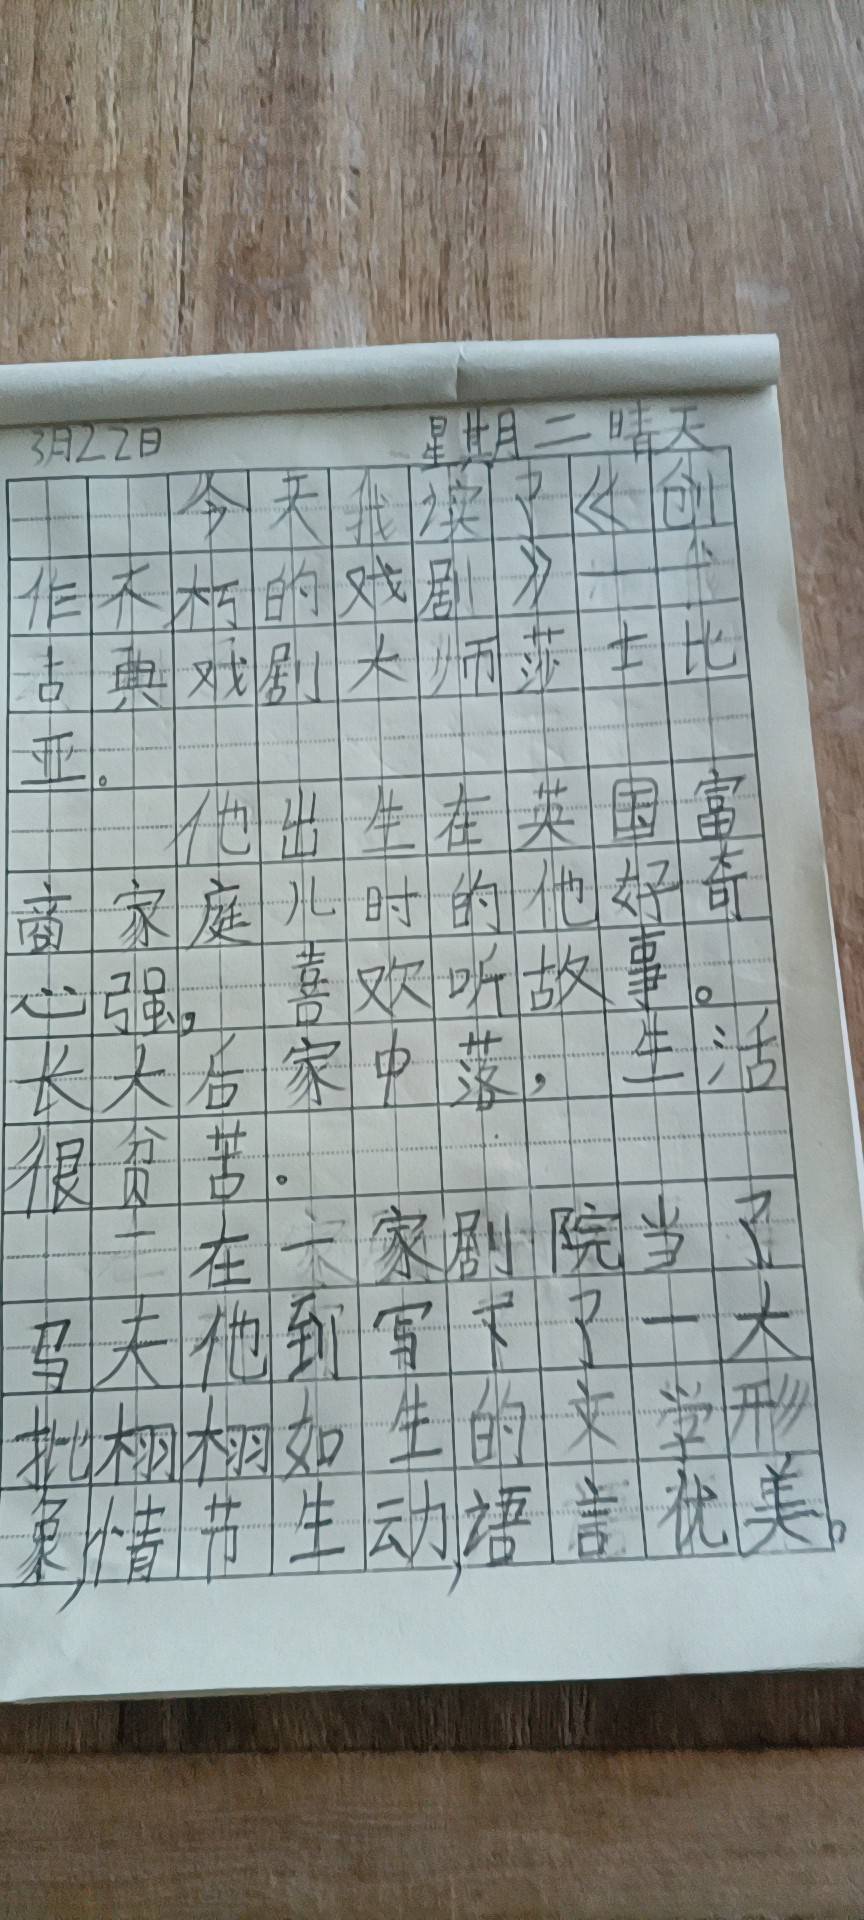 3月22日 星期二 晴天
今天我读了《创
作不朽的戏剧》——
古典戏剧大师莎士比
亚。
他出生在英国富
商家庭儿时的他好奇
心强，喜欢听故事。
长大后家中落，生活
很贫苦。
在一家剧院当了
马夫他到写下了一大
批栩栩如生的文学形
象，情节生动，语言优美。